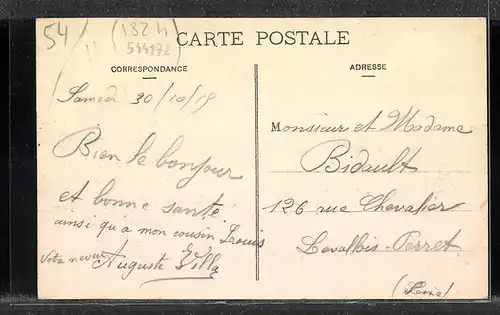 54
(182 h
544172
CARTE POSTALE
CORRESPONDANCE
Samedi 30/10/15
Bien le bonjour
et bonne santé
ainsi qu'a mon cousin Louis
Votre neveu Auguste Villa
ADRESSE
Monsieur et Madame
Bidault
126 rue Chevalier
Levallois-Perret
(Seine)